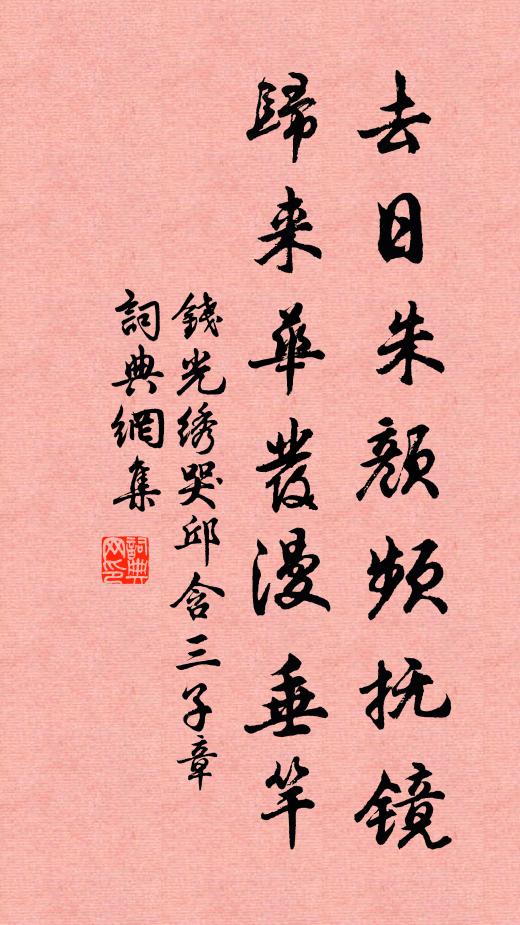 去日朱颜频抚镜
歸来華發漫垂竿
錢光绣哭邱含三子章
詞典網集
詞典网印